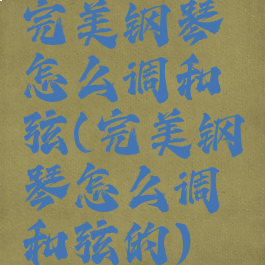 完美钢琴
怎么调和
弦(完美钢
琴怎么调
和弦的)